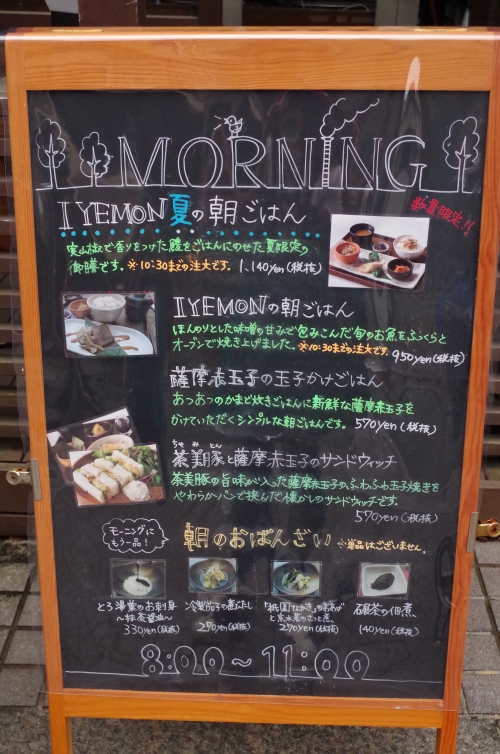 MORNING
IYEMON夏の朝ごはん
数量限定!!
実山椒で香りをつけた鱧をごはんにのせた夏限定の
御膳です。※10:30までの注文です。1,140yen(税抜)
IYEMONの朝ごはん
ほんのりとした味噌の甘みで包みこんだ旬のお魚をふっくらと
オーブンで焼き上げました。※10:30までの注文です。950yen(税抜)
薩摩赤玉子の玉子かけごはん
あつあつのかまど炊きごはんに新鮮な薩摩赤玉子を
かけていただくシンプルな朝ごはんです。570yen(税抜)
ちゃ み とん
茶美豚と薩摩赤玉子のサンドウィッチ
茶美豚の旨味が入った薩摩赤玉子のふわふわ玉子焼きを
やわらかパンで挟んだ懐かしのサンドウィッチです。
570yen(税抜)
モーニングに
もう一品!
朝のおばんざい ※単品はございません。
とろ湯葉のお刺身
~抹茶醤油~
330yen(税抜)
冷製茄子の煮びたし
290yen(税抜)
と京水菜のさっと煮
290yen(税抜)
石臼茶の佃煮
140yen(税抜)
8:00~11:00